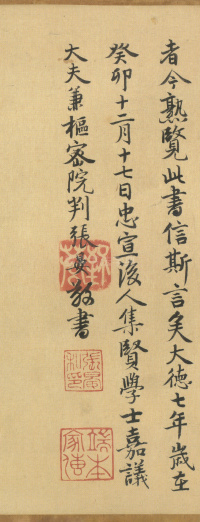 者今熟覽此書信斯言矣大德七年歲在
癸卯十二月十七日忠宣後人集賢學士嘉議
大夫兼樞密院判張晏敬書
端本家傳